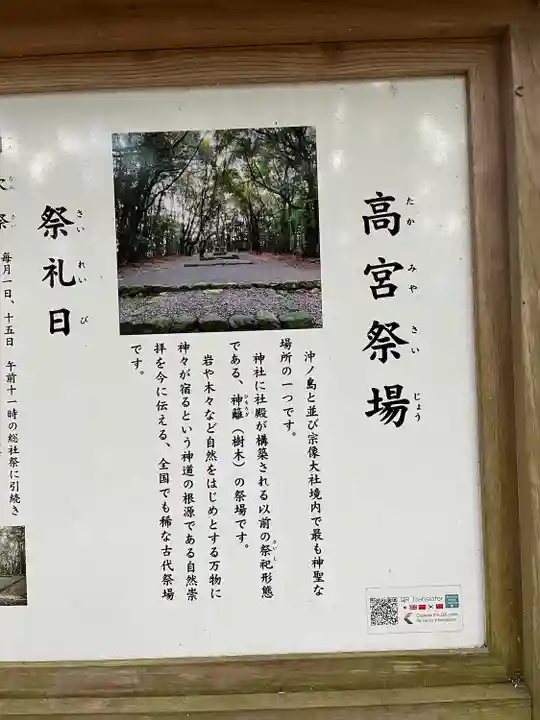 高宮祭場
たか みや さい じょう
沖ノ島と並び宗像大社境内で最も神聖な
場所の一つです。
神社に社殿が構築される以前の祭祀形態
さいし
である、神籬（樹木）の祭場です。
ひもろぎ
岩や木々など自然をはじめとする万物に
神々が宿るという神道の根源である自然崇
拝を今に伝える、全国でも稀な古代祭場
です。
祭礼日
さい れい び
次祭
なみ さい
毎月一日、十五日 午前十一時の総社祭に引続き
QR Translator